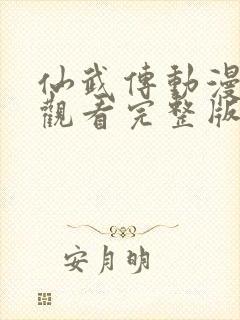 仙武傳動漫
觀看完整版
安月明